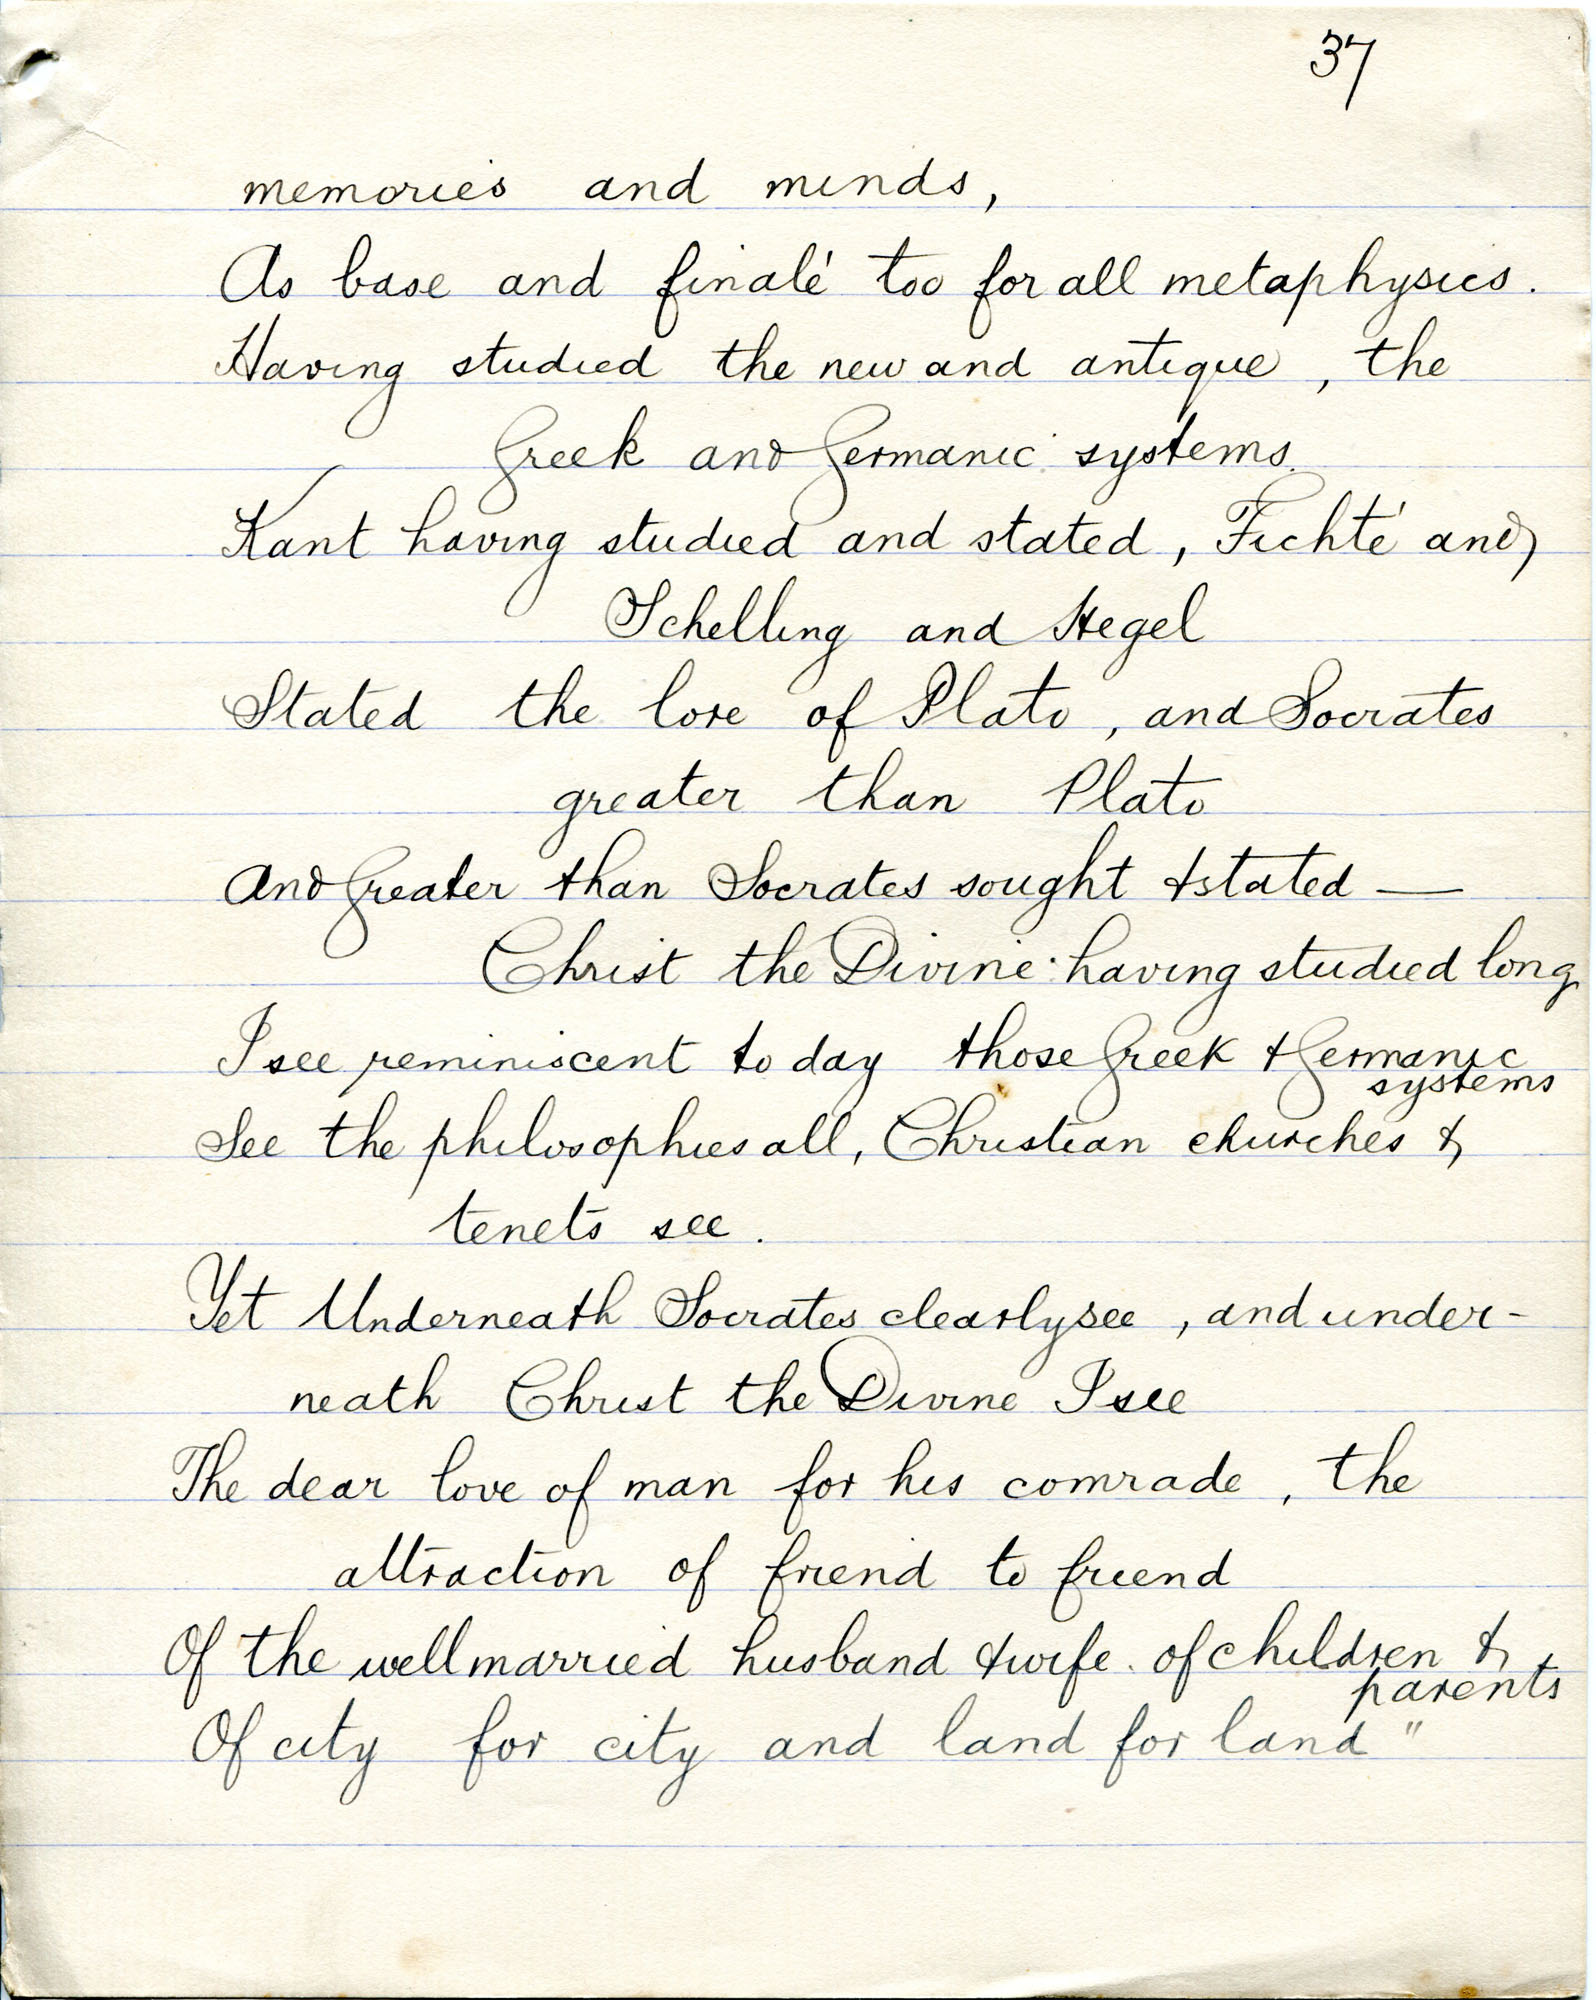 37
memories and minds,
As base and finalé too for all metaphysics.
Having studied the new and antique, the
Greek and Germanic systems.
Kant having studied and stated, Fichté and
Schelling and Hegel
Stated the lore of Plato, and Socrates
greater than Plato
And Greater than Socrates sought & stated —
Christ the Divine having studied long
I see reminiscent to day those Greek & Germanic
systems
See the philosophies all, Christian churches &
tenets see.
Yet Underneath Socrates clearly see, and under-
neath Christ the Divine I see
The dear love of man for his comrade, the
attraction of friend to friend
Of the well married husband & wife. of children &
parents
Of city for city and land for land"